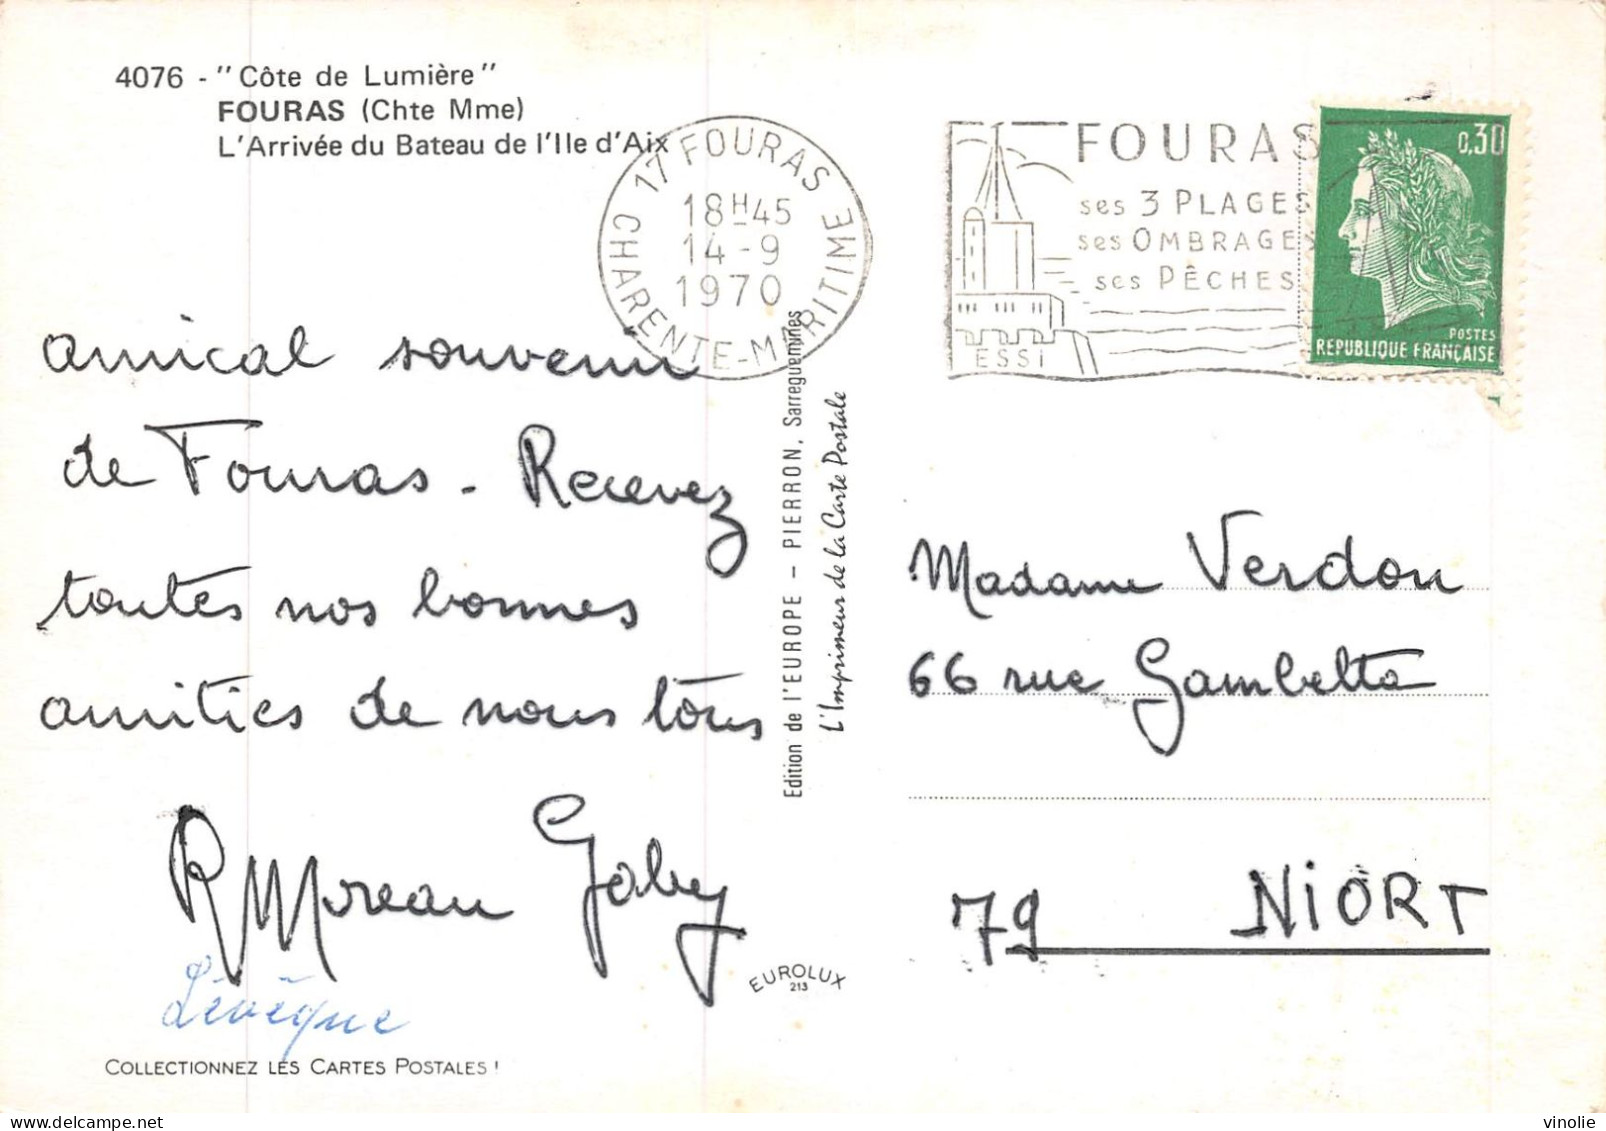 4076 - "Côte de Lumière"
FOURAS (Chte Mme)
L'Arrivée du Bateau de l'Ile d'Aix
17 FOURAS
18H45
14-9
1970
CHARENTE-MARITIME
FOURAS
ses 3 PLAGES
ses OMBRAGES
ses PÊCHES
ESSI
0,30
POSTES
REPUBLIQUE FRANÇAISE
amical souvenir
de Fouras - Recevez
toutes nos bonnes
amitiés de nous tous
R Moreau Gaby
Lévêque
COLLECTIONNEZ LES CARTES POSTALES !
Edition de l'EUROPE - PIERRON, Sarreguemines
L'Imprimeur de la Carte Postale
EUROLUX
213
Madame Verdon
66 rue Gambetta
79 NIORT
vinolie